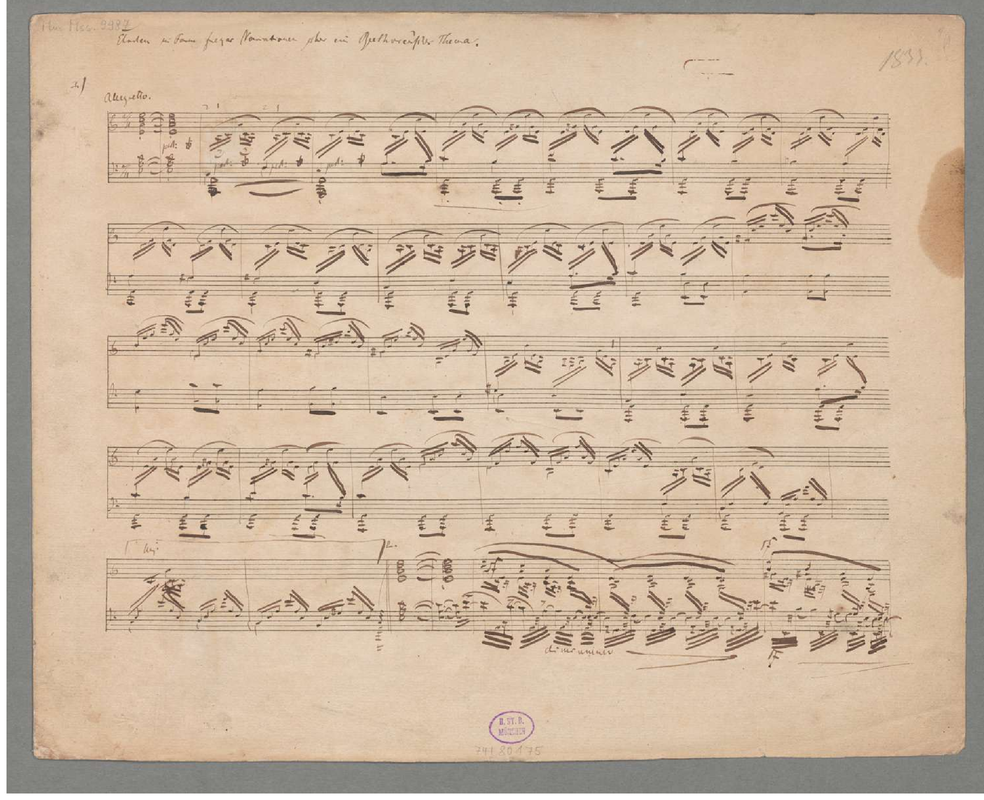 Mus. Mss. 9937
Etuden in Form freyer Variationen über ein Beethovensches Thema.
1833.
Allegretto.
ped:
ped: ped: ped:
1.
2.
diminuendo
B. ST. B.
MÜNCHEN
79/80175